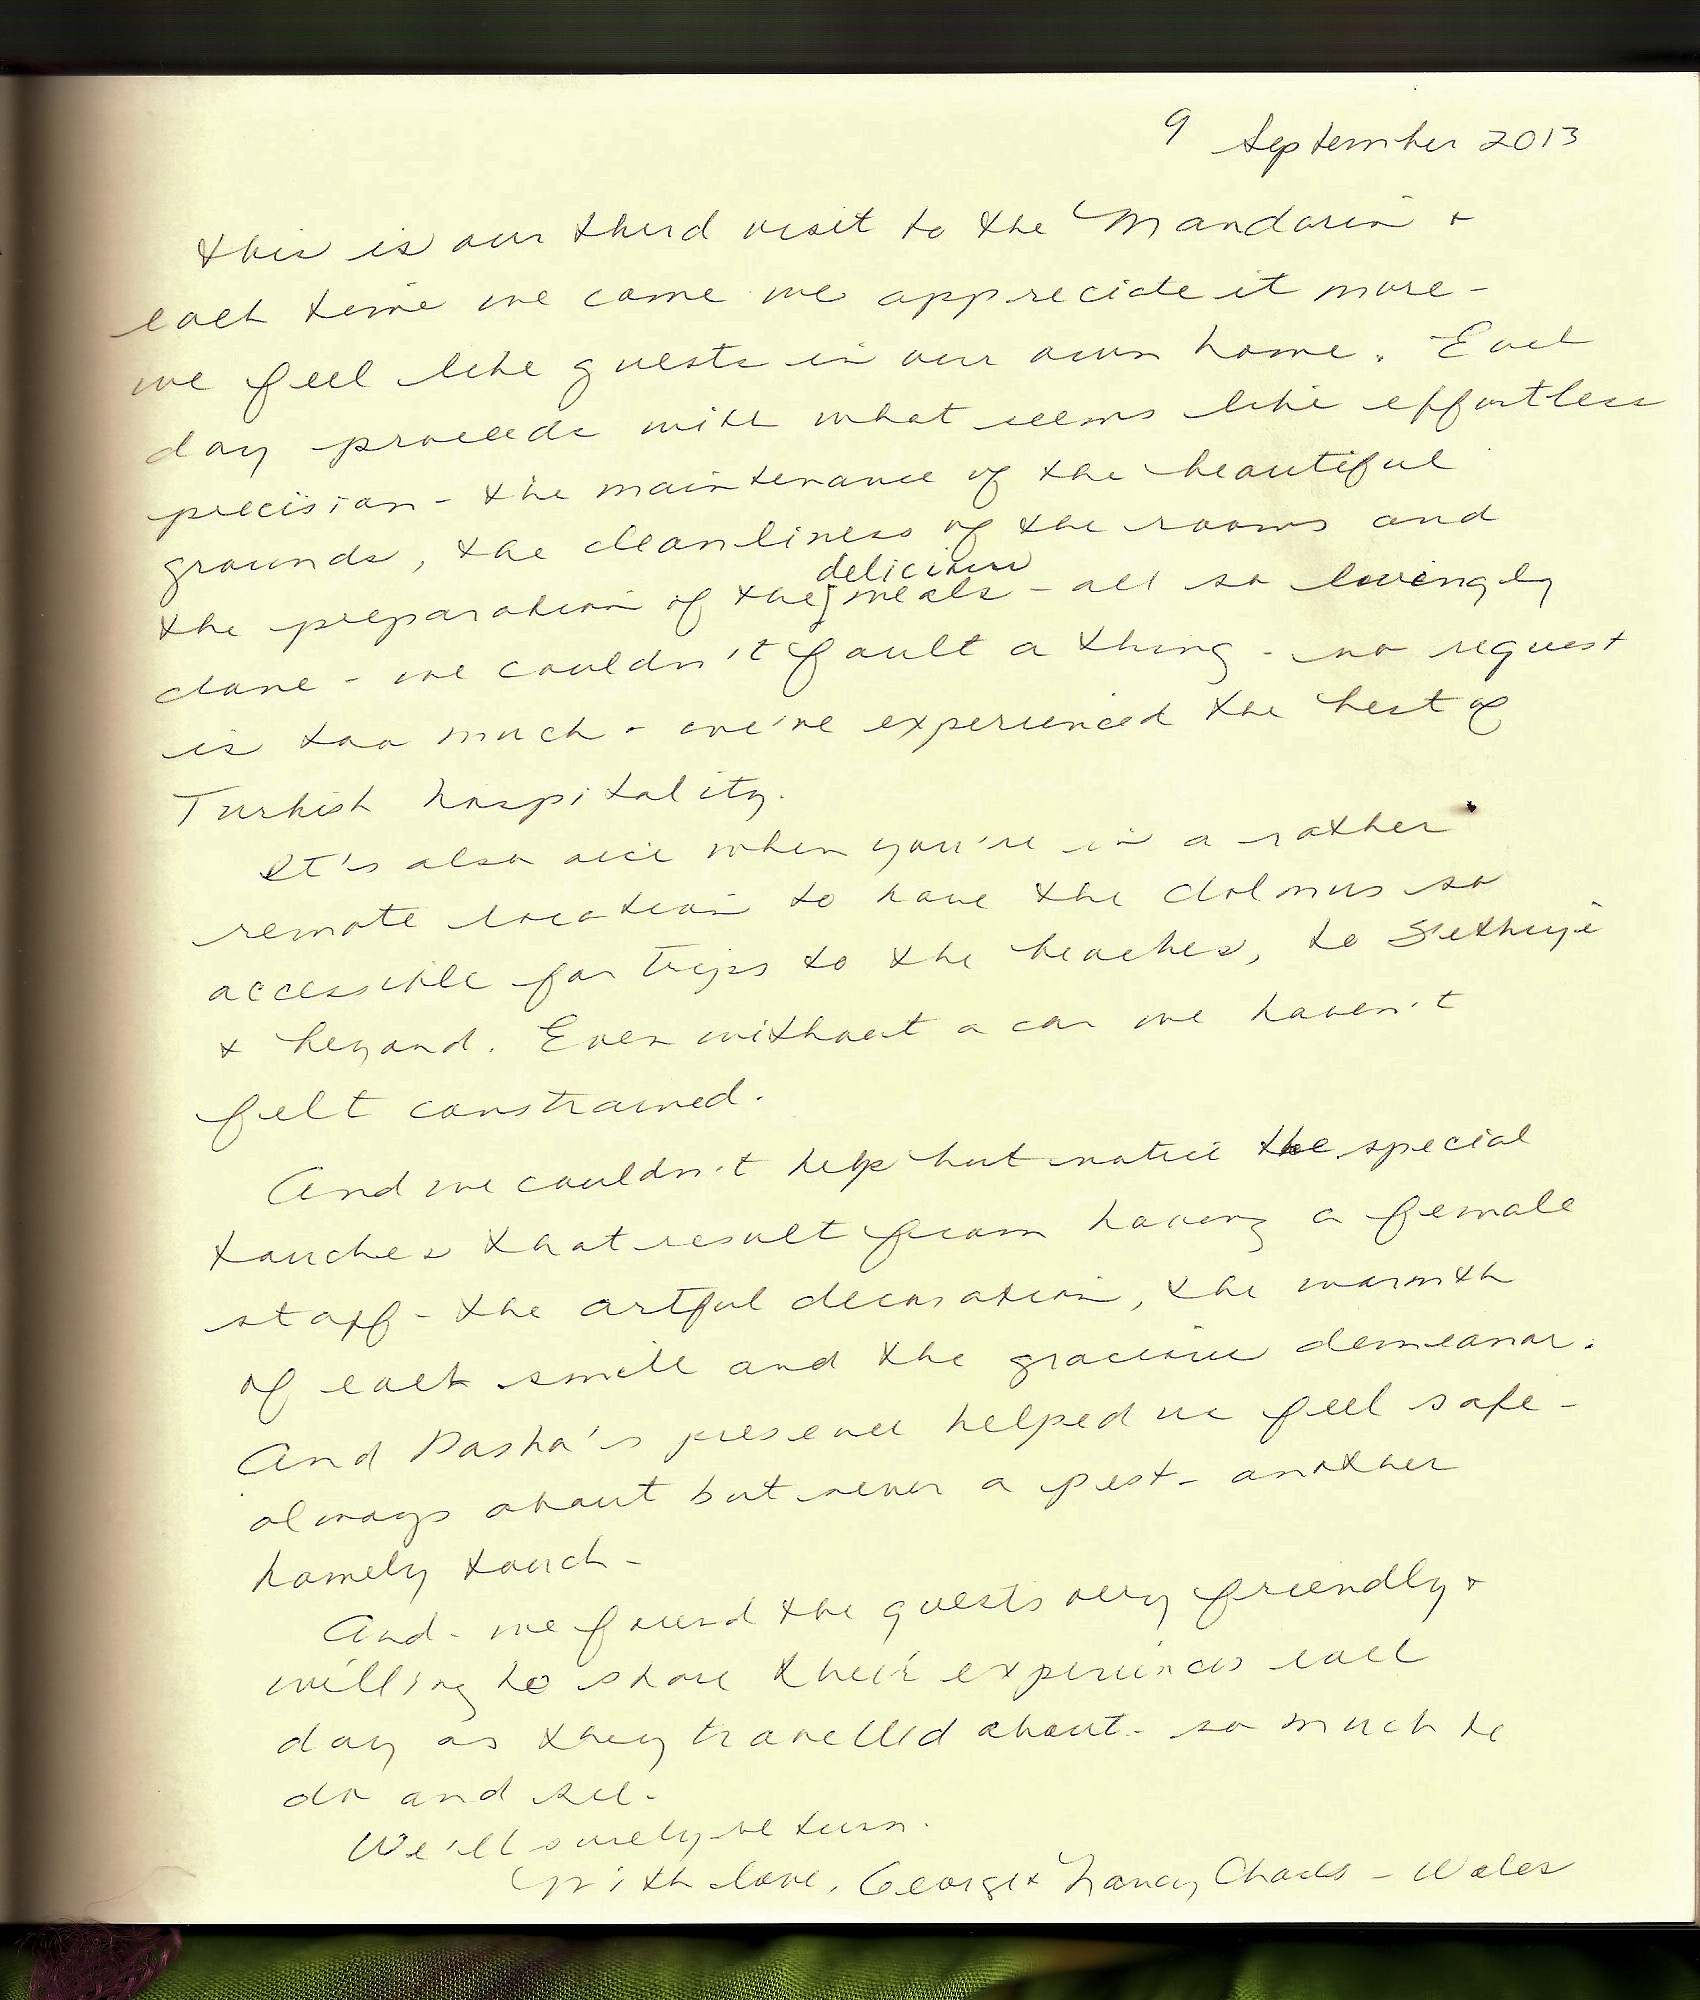 9 September 2013
This is our third visit to the Mandarin +
each time we come we appreciate it more -
we feel like guests in our own home. Each
day proceeds with what seems like effortless
precision - the maintenance of the beautiful
grounds, the cleanliness of the rooms and
the preparation of the delicious meals - all so lovingly
done - we couldn't fault a thing - no request
is too much - we've experienced the best of
Turkish hospitality.
It's also nice when you're in a rather
remote location to have the dolmus so
accessible for trips to the beaches, to Fethiye
+ beyond. Even without a car we haven't
felt constrained.
And we couldn't help but notice the special
touches that result from having a female
staff - the artful decoration, the warmth
of each smile and the gracious demeanor.
And Pasha's presence helped us feel safe -
always about but never a pest - another
homely touch -
And - we found the guests very friendly +
willing to share their experiences each
day as they travelled about - so much to
do and see -
We'll surely return.
With love, George + Nancy - Wales